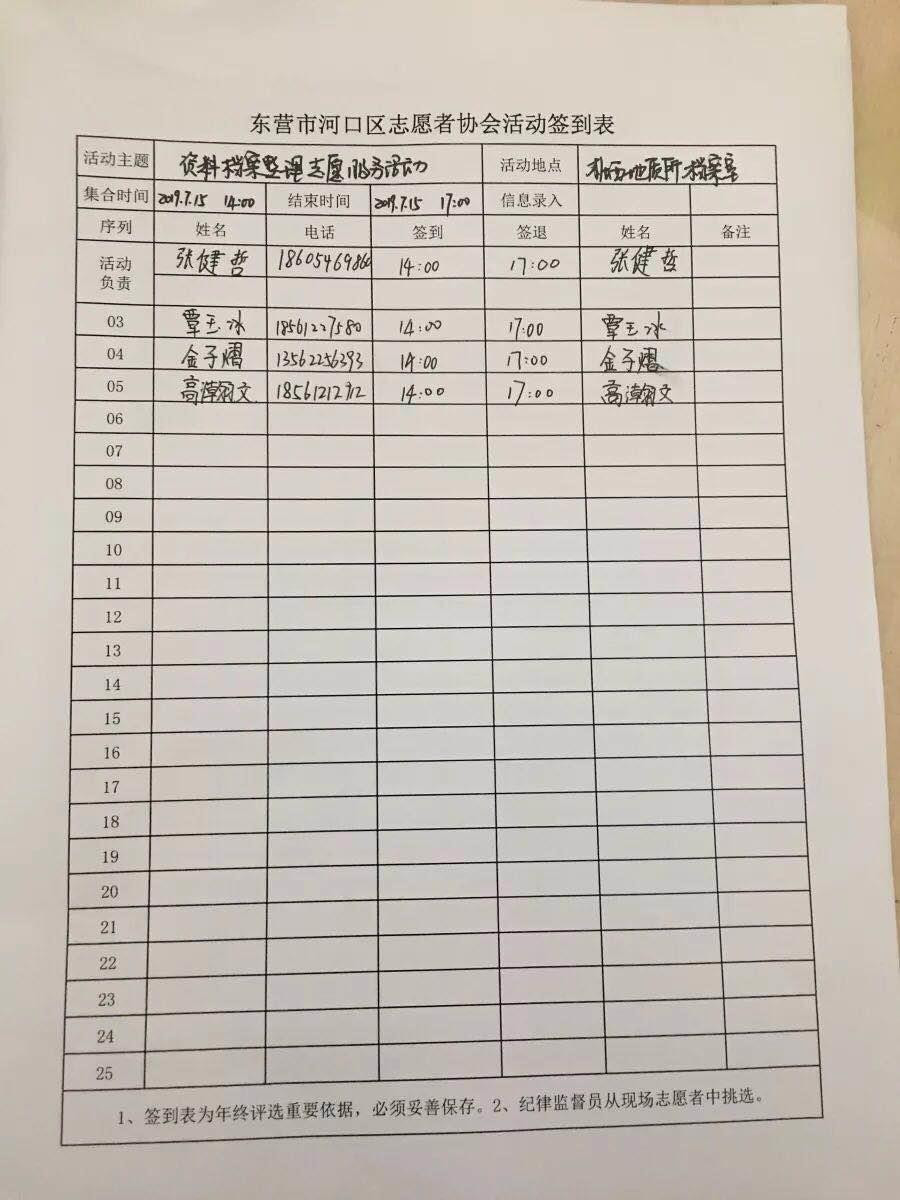 东营市河口区志愿者协会活动签到表
活动主题 资料档案整理志愿服务活动 活动地点 地质所档案室
集合时间 2019.7.15 14:00 结束时间 2019.7.15 17:00 信息录入
序列 姓名 电话 签到 签退 姓名 备注
活动负责 张健哲 18605469860 14:00 17:00 张健哲
03 覃玉冰 18561227580 14:00 17:00 覃玉冰
04 金子熠 13562256393 14:00 17:00 金子熠
05 高瀚文 18561212912 14:00 17:00 高瀚文
06
07
08
09
10
11
12
13
14
15
16
17
18
19
20
21
22
23
24
25
1、签到表为年终评选重要依据，必须妥善保存。2、纪律监督员从现场志愿者中挑选。